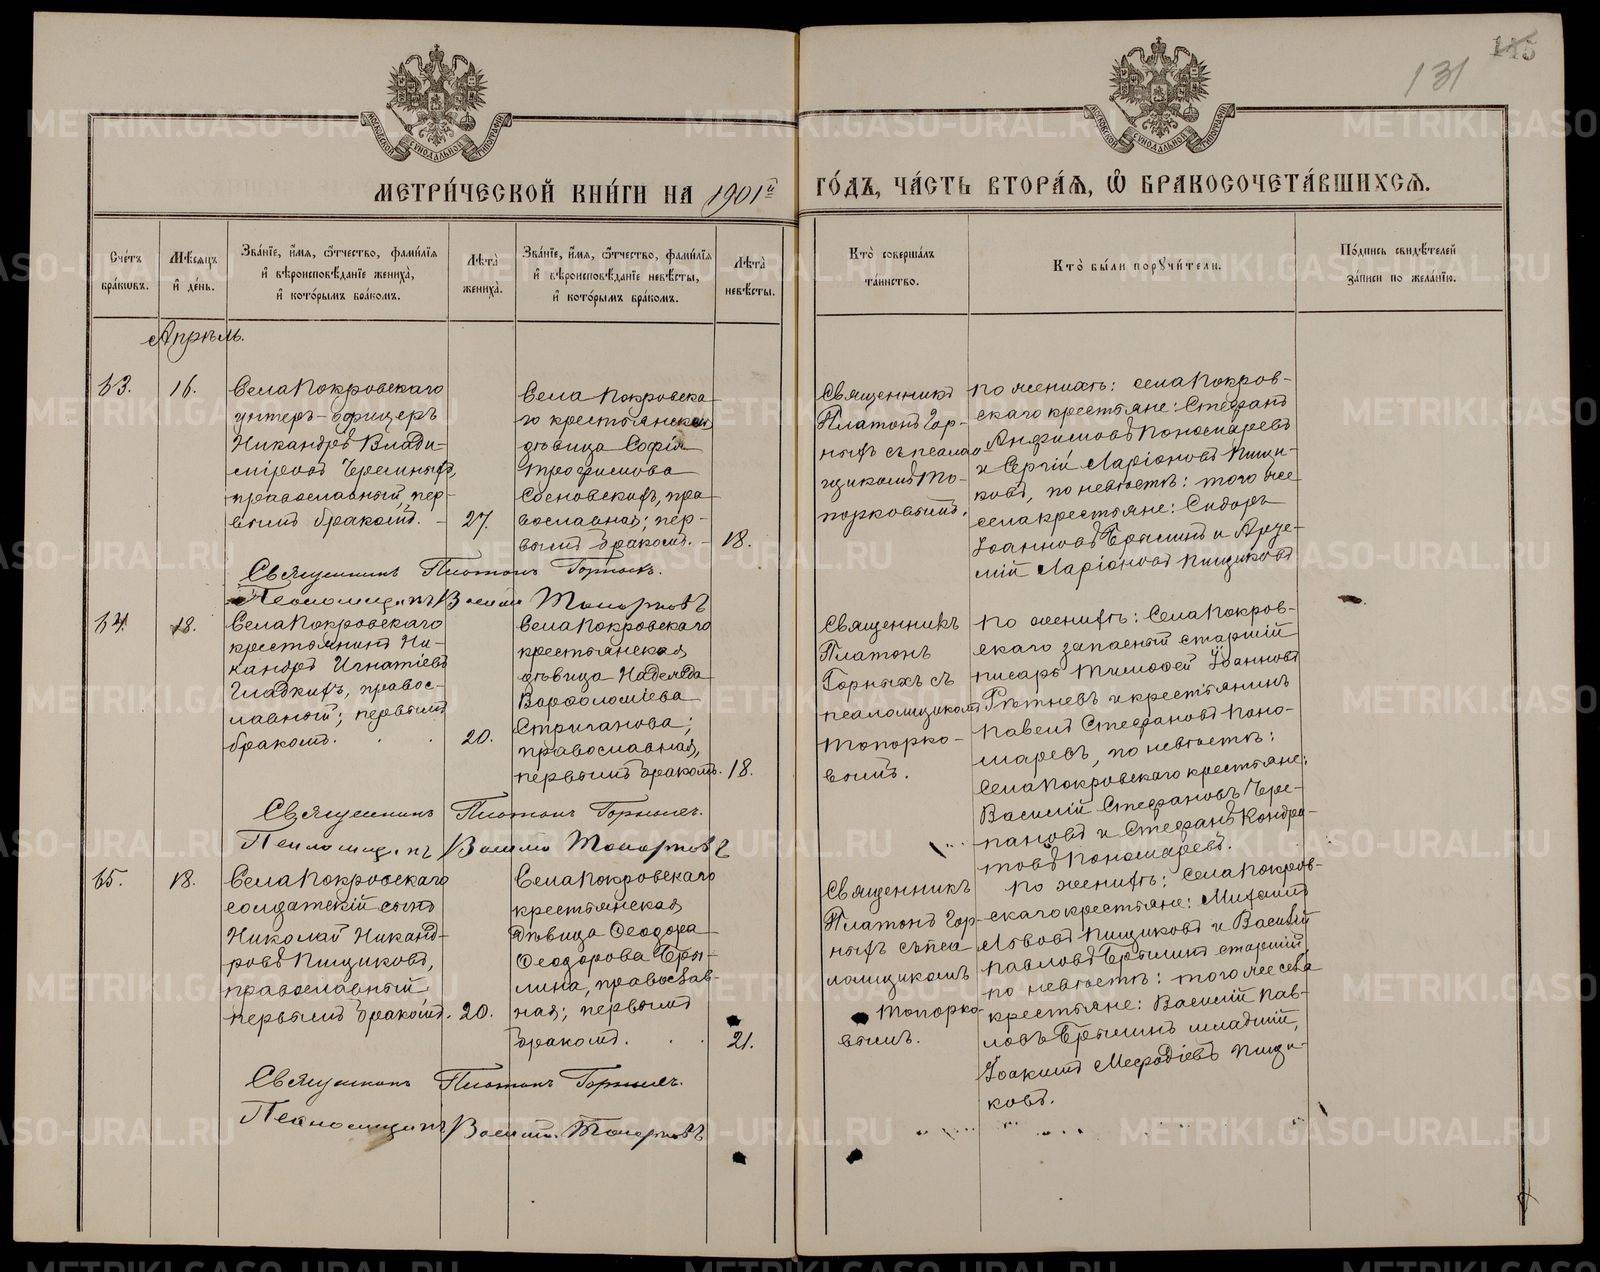 131
115
МОСКОВСКОЙ СѴНОДАЛЬНОЙ ТИПОГРАФІИ
МОСКОВСКОЙ СѴНОДАЛЬНОЙ ТИПОГРАФІИ
МЕТРИ́ЧЕСКОЙ КНИ́ГИ НА 1901й ГО́ДЪ, ЧА́СТЬ ВТОРА́Я, Ѡ БРАКОСОЧЕТА́ВШИХСЯ.
Сче́тъ бра́кωвъ.
Мѣ́сяцъ и҆ де́нь.
Зва́нїе, и҆́мя, ѻ҆́тчество, фами́лїя
и҆ вѣроисповѣ́данїе жениха̀,
и҆ кото́рымъ бра́комъ.
Лѣта̀ жениха̀.
Зва́нїе, и҆́мя, ѻ҆́тчество, фами́лїя
и҆ вѣроисповѣ́данїе невѣ́сты,
и҆ кото́рымъ бра́комъ.
Лѣта̀ невѣ́сты.
Кто̀ соверша́лъ
та́инство.
Кто̀ бы́ли порꙋчи́тели.
По́дпись свидѣ́телей
за́писи по жела́нїю.
Апрѣль.
63.
16.
Села Покровскаго
унтеръ-офицеръ
Никандръ Влади-
міровъ Ереминыхъ,
православный, пер-
вымъ бракомъ.
27.
Села Покровска-
го крестьянская
дѣвица Софія
Трофимова
Сосновскихъ, пра-
вославная; пер-
вымъ бракомъ.
18.
Священникъ
Платонъ Гор-
ныхъ съ псалом-
щикомъ То-
порковымъ.
По женихѣ: села Покров-
скаго крестьяне: Стефанъ
Анфимовъ Пономаревъ
и Сергій Ларіоновъ Пищи-
ковъ, по невѣстѣ: того же
села крестьяне: Сидоръ
Іоанновъ Брылинъ и Арте-
мій Ларіоновъ Пищиковъ
Священникъ Платонъ Горныхъ.
Псаломщикъ Василій Топорковъ
64.
18.
Села Покровскаго
крестьянинъ Ни-
кандръ Игнатіевъ
Гладкихъ, правос-
лавный; первымъ
бракомъ.
20.
Села Покровскаго
крестьянская
дѣвица Надежда
Варфоломіева
Стриганова;
православная,
первымъ бракомъ.
18.
Священникъ
Платонъ
Горныхъ съ
псаломщикомъ
Топорко-
вымъ.
По женихѣ: Села Покров-
скаго запасный старшій
писарь Тимофей Іоанновъ
Рѣтневъ и крестьянинъ
Павелъ Стефановъ Поно-
маревъ, по невѣстѣ:
Села Покровскаго крестьяне:
Василій Стефановъ Чере-
пановъ и Стефанъ Кондра-
товъ Пономаревъ.
Священникъ Платонъ Горныхъ.
Псаломщикъ Василій Топорковъ
65.
18.
Села Покровскаго
солдатскій сынъ
Николай Никанд-
ровъ Пищиковъ,
православный
первымъ бракомъ.
20.
Села Покровскаго
крестьянская
дѣвица Ѳеодора
Ѳеодорова Бры-
лина, православ-
ная; первымъ
бракомъ.
21.
Священникъ
Платонъ Гор-
ныхъ съ пса-
ломщикомъ
Топорко-
вымъ.
По женихѣ: Села Покров-
скаго крестьяне: Михаилъ
Львовъ Пищиковъ и Василій
Павловъ Брылинъ старшій,
по невѣстѣ: того же села
крестьяне: Василій Пав-
ловъ Брылинъ младшій,
Іоакимъ Меѳодіевъ Пищи-
ковъ.
Священникъ Платонъ Горныхъ.
Псаломщикъ Василій Топорковъ
METRIKI.GASO-URAL.RU